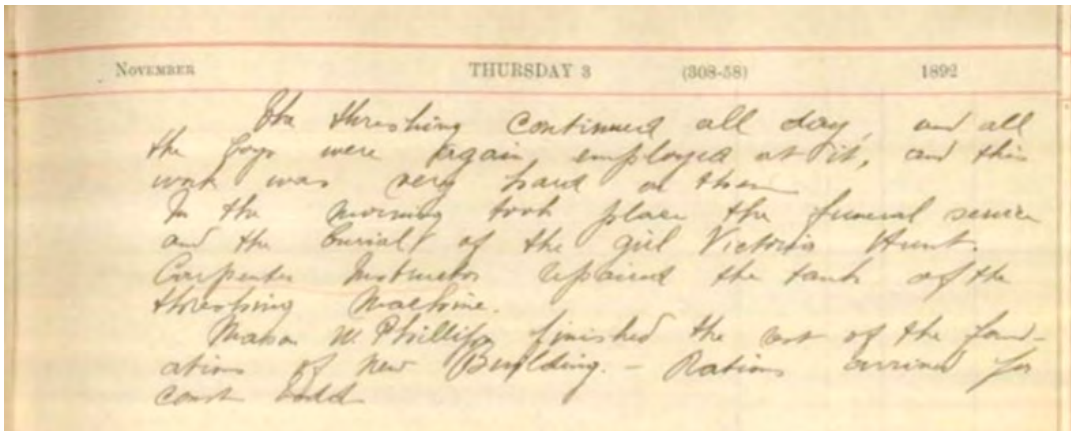 NOVEMBER THURSDAY 3 (308-58) 1892
The threshing continued all day, and all
the boys were again employed at it, and this
work was very hard on them
In the morning took place the funeral service
and the burial of the girl Victoria Hunt.
Carpenter Instructor repaired the tank of the
threshing Machine.
Mason W. Phillips finished the rest of the found-
ations of new Building. - Rations arrived for
Const Dodd